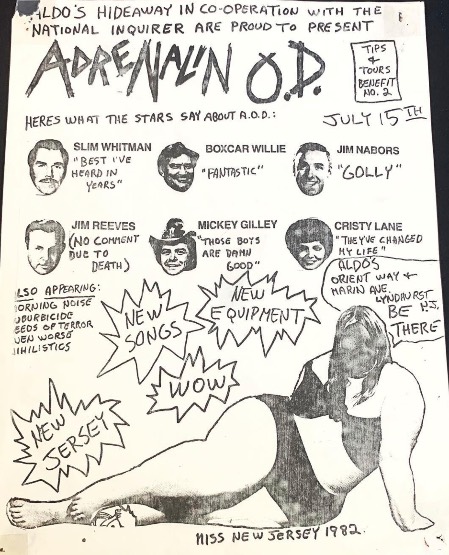 ALDO'S HIDEAWAY IN CO-OPERATION WITH THE
NATIONAL INQUIRER ARE PROUD TO PRESENT
ADRENALIN O.D.
TIPS
&
TOURS
BENEFIT
NO. 2
HERES WHAT THE STARS SAY ABOUT A.O.D.:
JULY 15TH
SLIM WHITMAN
"BEST I'VE
HEARD IN
YEARS"
BOXCAR WILLIE
"FANTASTIC"
JIM NABORS
"GOLLY"
JIM REEVES
(NO COMMENT
DUE TO
DEATH)
MICKEY GILLEY
"THOSE BOYS
ARE DAMN
GOOD"
CRISTY LANE
"THEY'VE CHANGED
MY LIFE"
ALSO APPEARING:
MORNING NOISE
SUBURBICIDE
SEEDS OF TERROR
EVEN WORSE
NIHILISTICS
NEW
SONGS
NEW
EQUIPMENT
WOW
NEW
JERSEY
ALDO'S
ORIENT WAY &
MARIN AVE.
LYNDHURST
N.J.
BE
THERE
MISS NEW JERSEY 1982